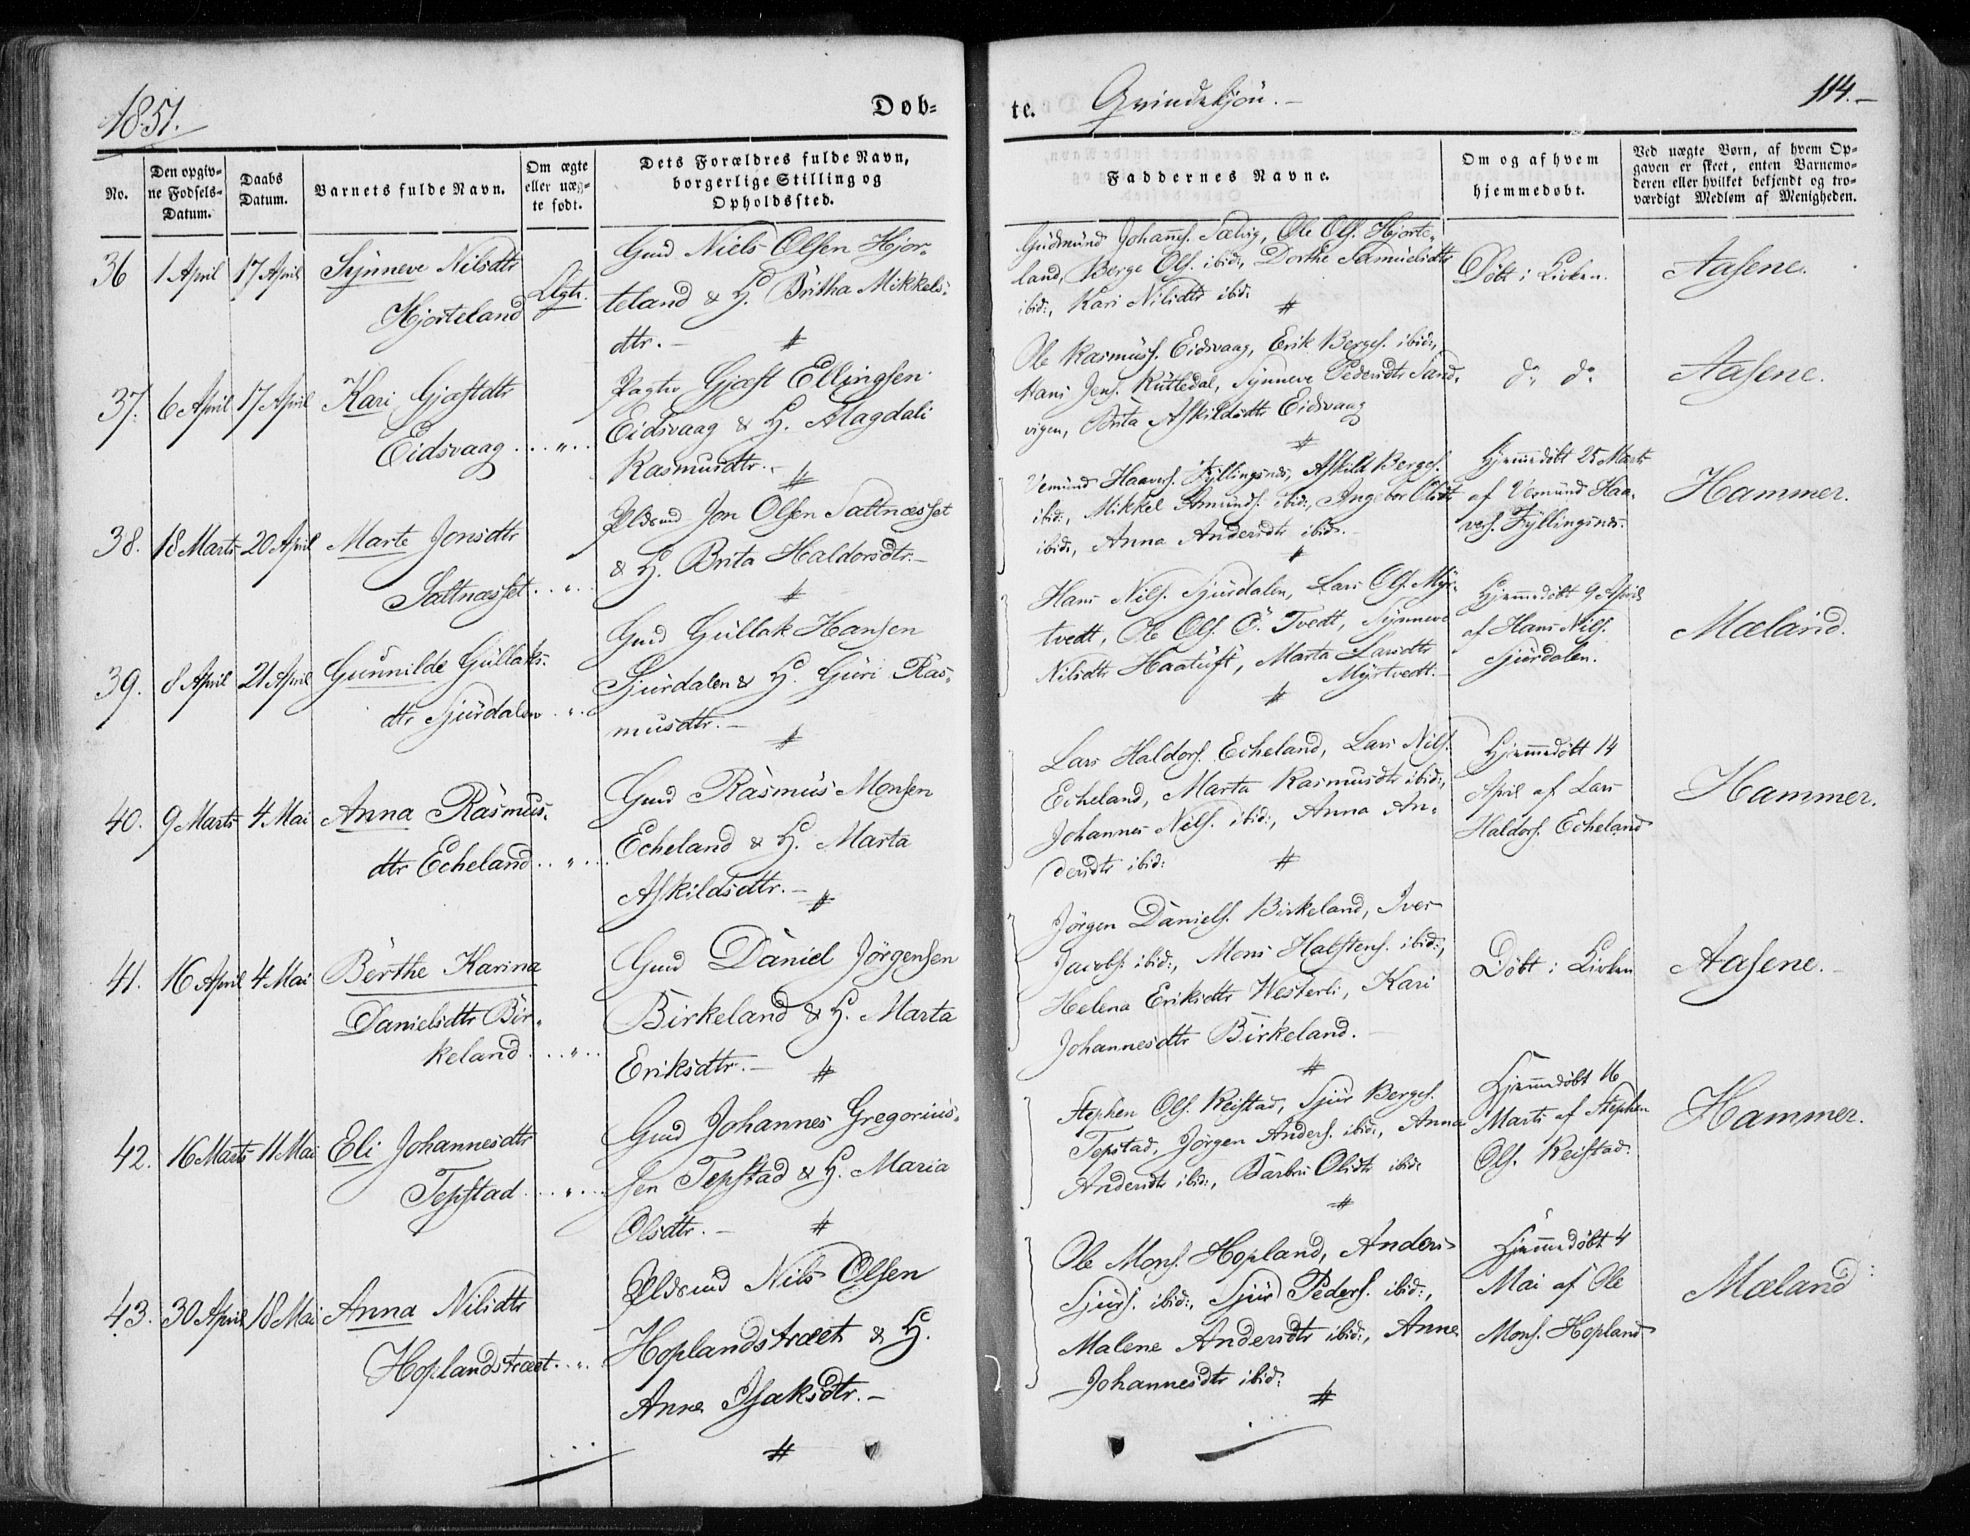 1851.
Døb-
te.
Qvindekjøn.
114.
No.
Den opgiv-
ne Fødsels-
Datum.
Daabs
Datum.
Barnets fulde Navn.
Om ægte
eller uæg-
te født.
Dets Forældres fulde Navn,
borgerlige Stilling og
Opholdssted.
Faddernes Navne.
Om og af hvem
hjemmedøbt.
Ved uægte Børn, af hvem Op-
gaven er skeet, enten Barnemo-
deren eller hvilket bekjendt og tro-
værdigt Medlem af Menigheden.
36 1 April 17 April Synneve Nilsdtr
Hjorteland
Ægte.
Gmd Niels Olsen Hjor-
teland & H. Britha Mikkels-
dtr.
Gudmund Johanns. Sælvig, Ole Ols. Hjorte-
land, Berge Ols. ibid:, Dorthe Samuelsdtr
ibid:, Kari Nilsdtr ibid:
Døbt i Kirken.
Aasene.
37. 6 April 17 April Kari Gjæstdtr
Eidsvaag
Pagter Gjæst Ellingsen
Eidsvaag & H. Magdali
Rasmusdtr.
Ole Rasmuss. Eidsvaag, Erik Berges. ibid:,
Hans Jens. Rutledal, Synneve Pedersdtr Sand-
vigen, Brita Askildsdtr Eidsvaag
do do
Aasene.
38. 18 Marts 20 April Marte Jonsdtr
Saltnæsset
Pldsmd Jon Olsen Saltnæsset
& H. Brita Haldorsdtr.
Vemund Haavers. Fyllingsnes, Askild Berges.
ibid:, Mikkel Amunds. ibid:, Angebor Olsdtr
ibid:, Anna Andersdtr ibid:
Hjemmedøbt 25 Marts
af Vemund Haa-
vers. Fyllingsnes.
Hammer.
39. 8 April 21 April Gunnilde Gullaks-
dtr Sjurdalen
Gmd Gullak Hansen
Sjurdalen & H. Guri Ras-
musdtr.
Hans Nils. Sjurdalen, Lars Ols. Myr-
tvedt, Ole Ols. Ø. Tvedt, Synneve
Nilsdtr Haatuft, Marta Larsdtr
Myrtvedt.
Hjemmedøbt 9 April
af Hans Nils.
Sjurdalen.
Mæland.
40. 9 Marts 4 Mai Anna Rasmus-
dtr Echeland
Gmd Rasmus Monsen
Echeland & H. Marta
Askildsdtr.
Lars Haldors. Echeland, Lars Nils.
Echeland, Marta Rasmusdtr ibid:,
Johannes Nils. ibid:, Anna An-
dersdtr ibid:
Hjemmedøbt 14
April af Lars
Haldors. Echeland
Hammer.
41. 16 April 4 Mai Berthe Karina
Danielsdtr Bir-
keland
Gmd Daniel Jørgensen
Birkeland & H. Marta
Eriksdtr.
Jørgen Daniels. Birkeland, Iver
Jacobs. ibid:, Mons Halstens. ibid:,
Helena Eriksdtr Westerli, Kari
Johannesdtr Birkeland.
Døbt i Kirken
Aasene.
42. 16 Marts 11 Mai Eli Johannesdtr
Tepstad
Gmd Johannes Gregorius-
sen Tepstad & H. Maria
Olsdtr.
Stephen Ols. Reistad, Sjur Berges.
Tepstad, Jørgen Anders. ibid:, Anna
Andersdtr ibid:, Barbru Olsdtr ibid:
Hjemmedøbt 16
Marts af Stephen
Ols. Reistad.
Hammer.
43. 30 April 18 Mai Anna Nilsdtr
Hoplandstræet
Pldsmd Nils Olsen
Hoplandstræet & H.
Anne Isaksdtr.
Ole Mons. Hopland, Anders
Sjurs. ibid:, Sjur Peders. ibid:,
Malene Andersdtr ibid:, Anne
Johannesdtr ibid:
Hjemmedøbt 4
Mai af Ole
Mons. Hopland
Mæland